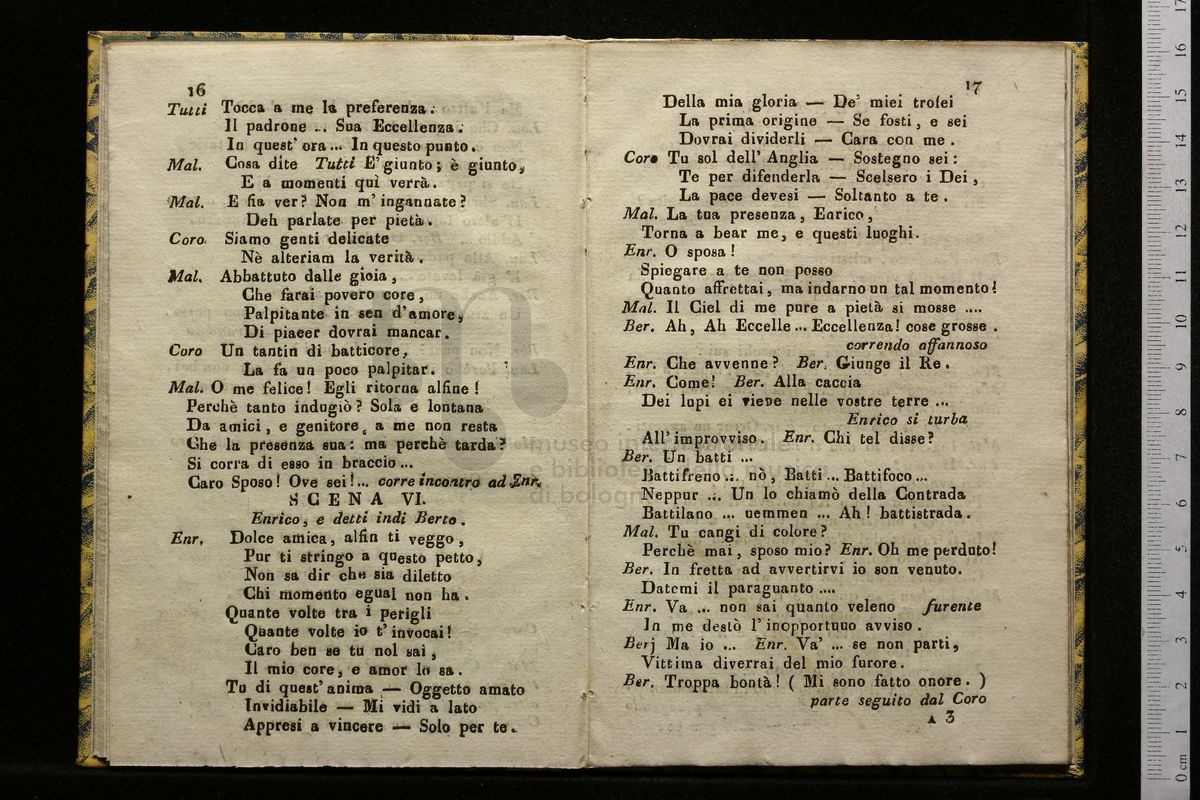 16
Tutti Tocca a me la preferenza.
Il padrone ... Sua Eccellenza.
In quest' ora ... In questo punto.
Mal. Cosa dite Tutti E' giunto; è giunto,
E a momenti quì verrà.
Mal. E fia ver? Non m' ingannate?
Deh parlate per pietà.
Coro Siamo genti delicate
Nè alteriam la verità.
Mal. Abbattuto dalle gioia,
Che farai povero core,
Palpitante in sen d'amore,
Di piacer dovrai mancar.
Coro Un tantin di batticore,
La fa un poco palpitar.
Mal. O me felice! Egli ritorna alfine!
Perchè tanto indugiò? Sola e lontana
Da amici, e genitore, a me non resta
Che la presenza sua: ma perchè tarda?
Si corra di esso in braccio ...
Caro Sposo! Ove sei!... corre incontro ad Enr.
SCENA VI.
Enrico, e detti indi Berto.
Enr. Dolce amica, alfin ti veggo,
Pur ti stringo a questo petto,
Non sa dir che sia diletto
Chi momento egual non ha.
Quante volte tra i perigli
Quante volte io t' invocai!
Caro ben se tu nol sai,
Il mio core, e amor lo sa.
Tu di quest' anima — Oggetto amato
Invidiabile — Mi vidi a lato
Appresi a vincere — Solo per te.
17
Della mia gloria — De' miei trofei
La prima origine — Se fosti, e sei
Dovrai dividerli — Cara con me.
Coro Tu sol dell' Anglia — Sostegno sei:
Te per difenderla — Scelsero i Dei,
La pace devesi — Soltanto a te.
Mal. La tua presenza, Enrico,
Torna a bear me, e questi luoghi.
Enr. O sposa!
Spiegare a te non posso
Quanto affrettai, ma indarno un tal momento!
Mal. Il Ciel di me pure a pietà si mosse ....
Ber. Ah, Ah Eccelle ... Eccellenza! cose grosse.
correndo affannoso
Enr. Che avvenne? Ber. Giunge il Re.
Enr. Come! Ber. Alla caccia
Dei lupi ei viene nelle vostre terre ...
Enrico si turba
All' improvviso. Enr. Chi tel disse?
Ber. Un batti ...
Battifreno ... nò, Batti ... Battifoco ...
Neppur ... Un lo chiamò della Contrada
Battilano ... nemmen ... Ah! battistrada.
Mal. Tu cangi di colore?
Perchè mai, sposo mio? Enr. Oh me perduto!
Ber. In fretta ad avvertirvi io son venuto.
Datemi il paraguanto ....
Enr. Va ... non sai quanto veleno furente
In me destò l' inopportuno avviso.
Berj Ma io ... Enr. Va' ... se non parti,
Vittima diverrai del mio furore.
Ber. Troppa bontà! ( Mi sono fatto onore. )
parte seguito dal Coro
A 3
museo internazionale
e biblioteca della musica
di bologna
0 cm 1 2 3 4 5 6 7 8 9 10 11 12 13 14 15 16 17